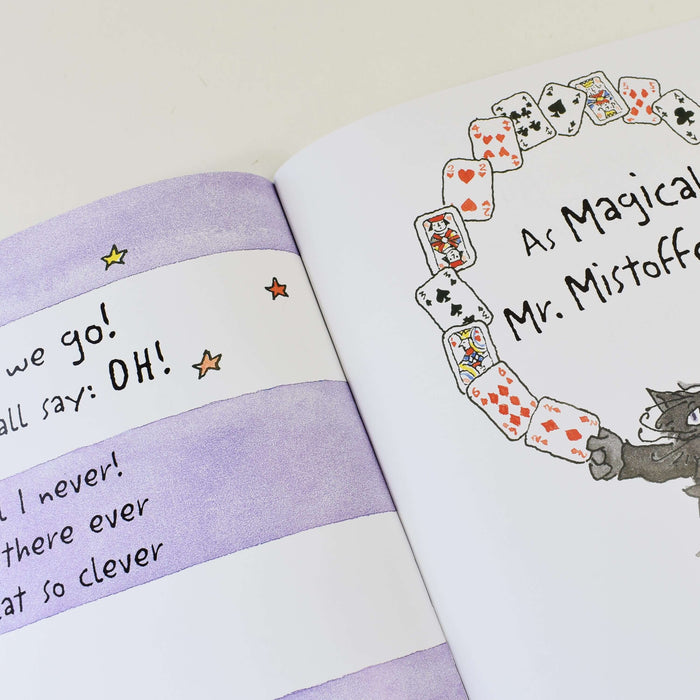 we go!
all say: OH!
I never!
there ever
so clever
As Magical
Mr.